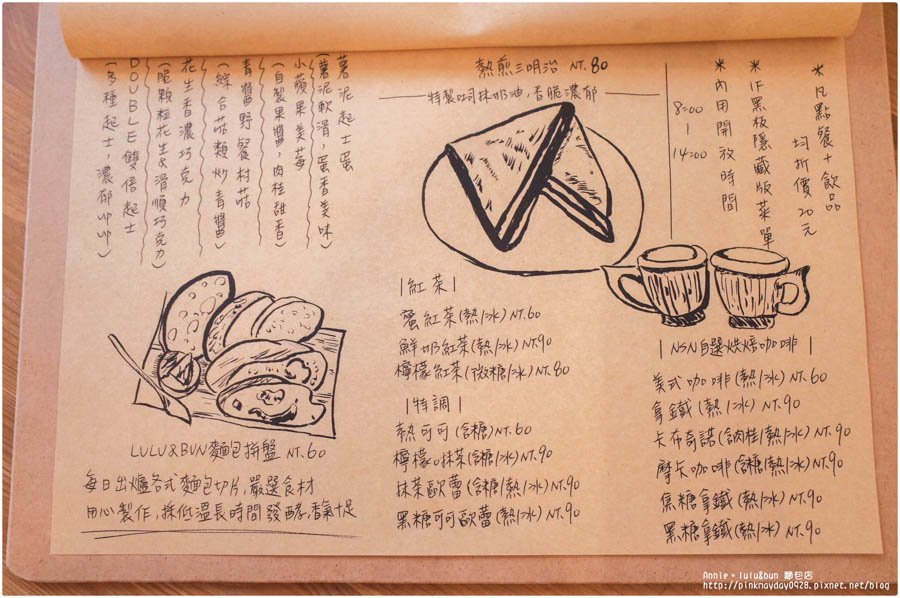 ※凡點餐+飲品
均折價20元
※1F黑板隱藏版菜單
※內用開放時間
8:00
|
14:00
熱煎三明治 NT.80
特製吐司抹奶油,香脆濃郁
薯泥起士蛋
(薯泥軟滑,蛋香美味)
小蘋果美莓
(自製果醬,肉桂甜香)
青醬野餐村菇
(綜合菇類炒青醬)
花生香濃巧克力
(脆顆粒花生&滑順巧克力)
DOUBLE雙倍起士
(多種起士,濃郁UPUP)
LULU&BUN麵包拼盤 NT.60
每日出爐各式麵包切片,嚴選食材
用心製作,採低溫長時間發酵,香氣十足
|紅茶|
蜜紅茶(熱/冰) NT.60
鮮奶紅茶(熱/冰) NT.90
檸檬紅茶(微糖/冰) NT.80
|特調|
熱可可(含糖) NT.60
檸檬抹茶(含糖/冰) NT.90
抹茶歐蕾(含糖/熱/冰) NT.90
黑糖可可歐蕾(熱/冰) NT.90
|NSN自選烘焙咖啡|
美式咖啡(熱/冰) NT.60
拿鐵(熱/冰) NT.90
卡布奇諾(含肉桂/熱/冰) NT.90
摩卡咖啡(含糖/熱/冰) NT.90
焦糖拿鐵(含糖/熱/冰) NT.90
黑糖拿鐵(熱/冰) NT.90
Annie • lulu&bun 麵包店
http://pinkmayday0928.pixnet.net/blog